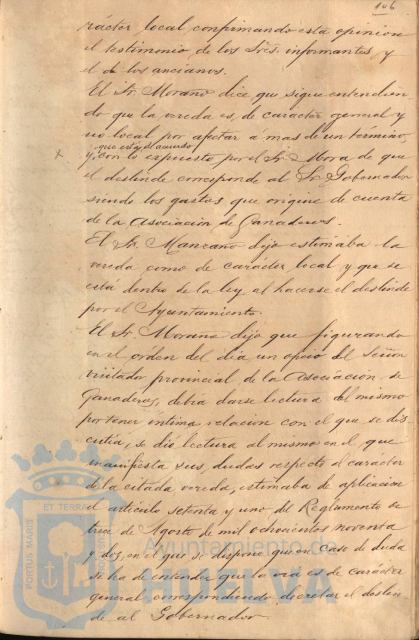 106
rácter local, confirmando esta opinión
el testimonio de los Sres. informantes y
el de los ancianos.
El Sr. Morano dice que sigue entendien
do que la vereda es, de caracter general y
no local por afectar a mas de un termino,
que está de acuerdo
x y, con lo expuesto por el Sr. Mora de que
el deslinde corresponde al Sr. Gobernador
siendo los gastos que origine de cuenta
de la Asociacion de Ganaderos.
El Sr. Manzano dijo estimaba la
vereda como de carácter local y que se
está dentro de la ley al hacerse el deslinde
por el Ayuntamiento.
El Sr. Morano dijo que figurando
en el orden del dia un oficio del Señor
visitador provincial de la Asociacion de
Ganaderos, debia darse lectura del mismo
por tener íntima relacion con el que se dis-
cutia, se dió lectura al mismo en el que
manifiesta sus dudas respecto al carácter
de la citada vereda, estimaba de aplicacion
el artículo setenta y uno del Reglamento de
trece de Agosto de mil ochocientos noventa
y dos, en el que se dispone que en caso de duda
se ha de entender que la via es de carácter
general correspondiendo decretar el deslin-
de al Gobernador
PORTUS MARIS
ET TERRAE
Ayuntamiento de
HUELVA